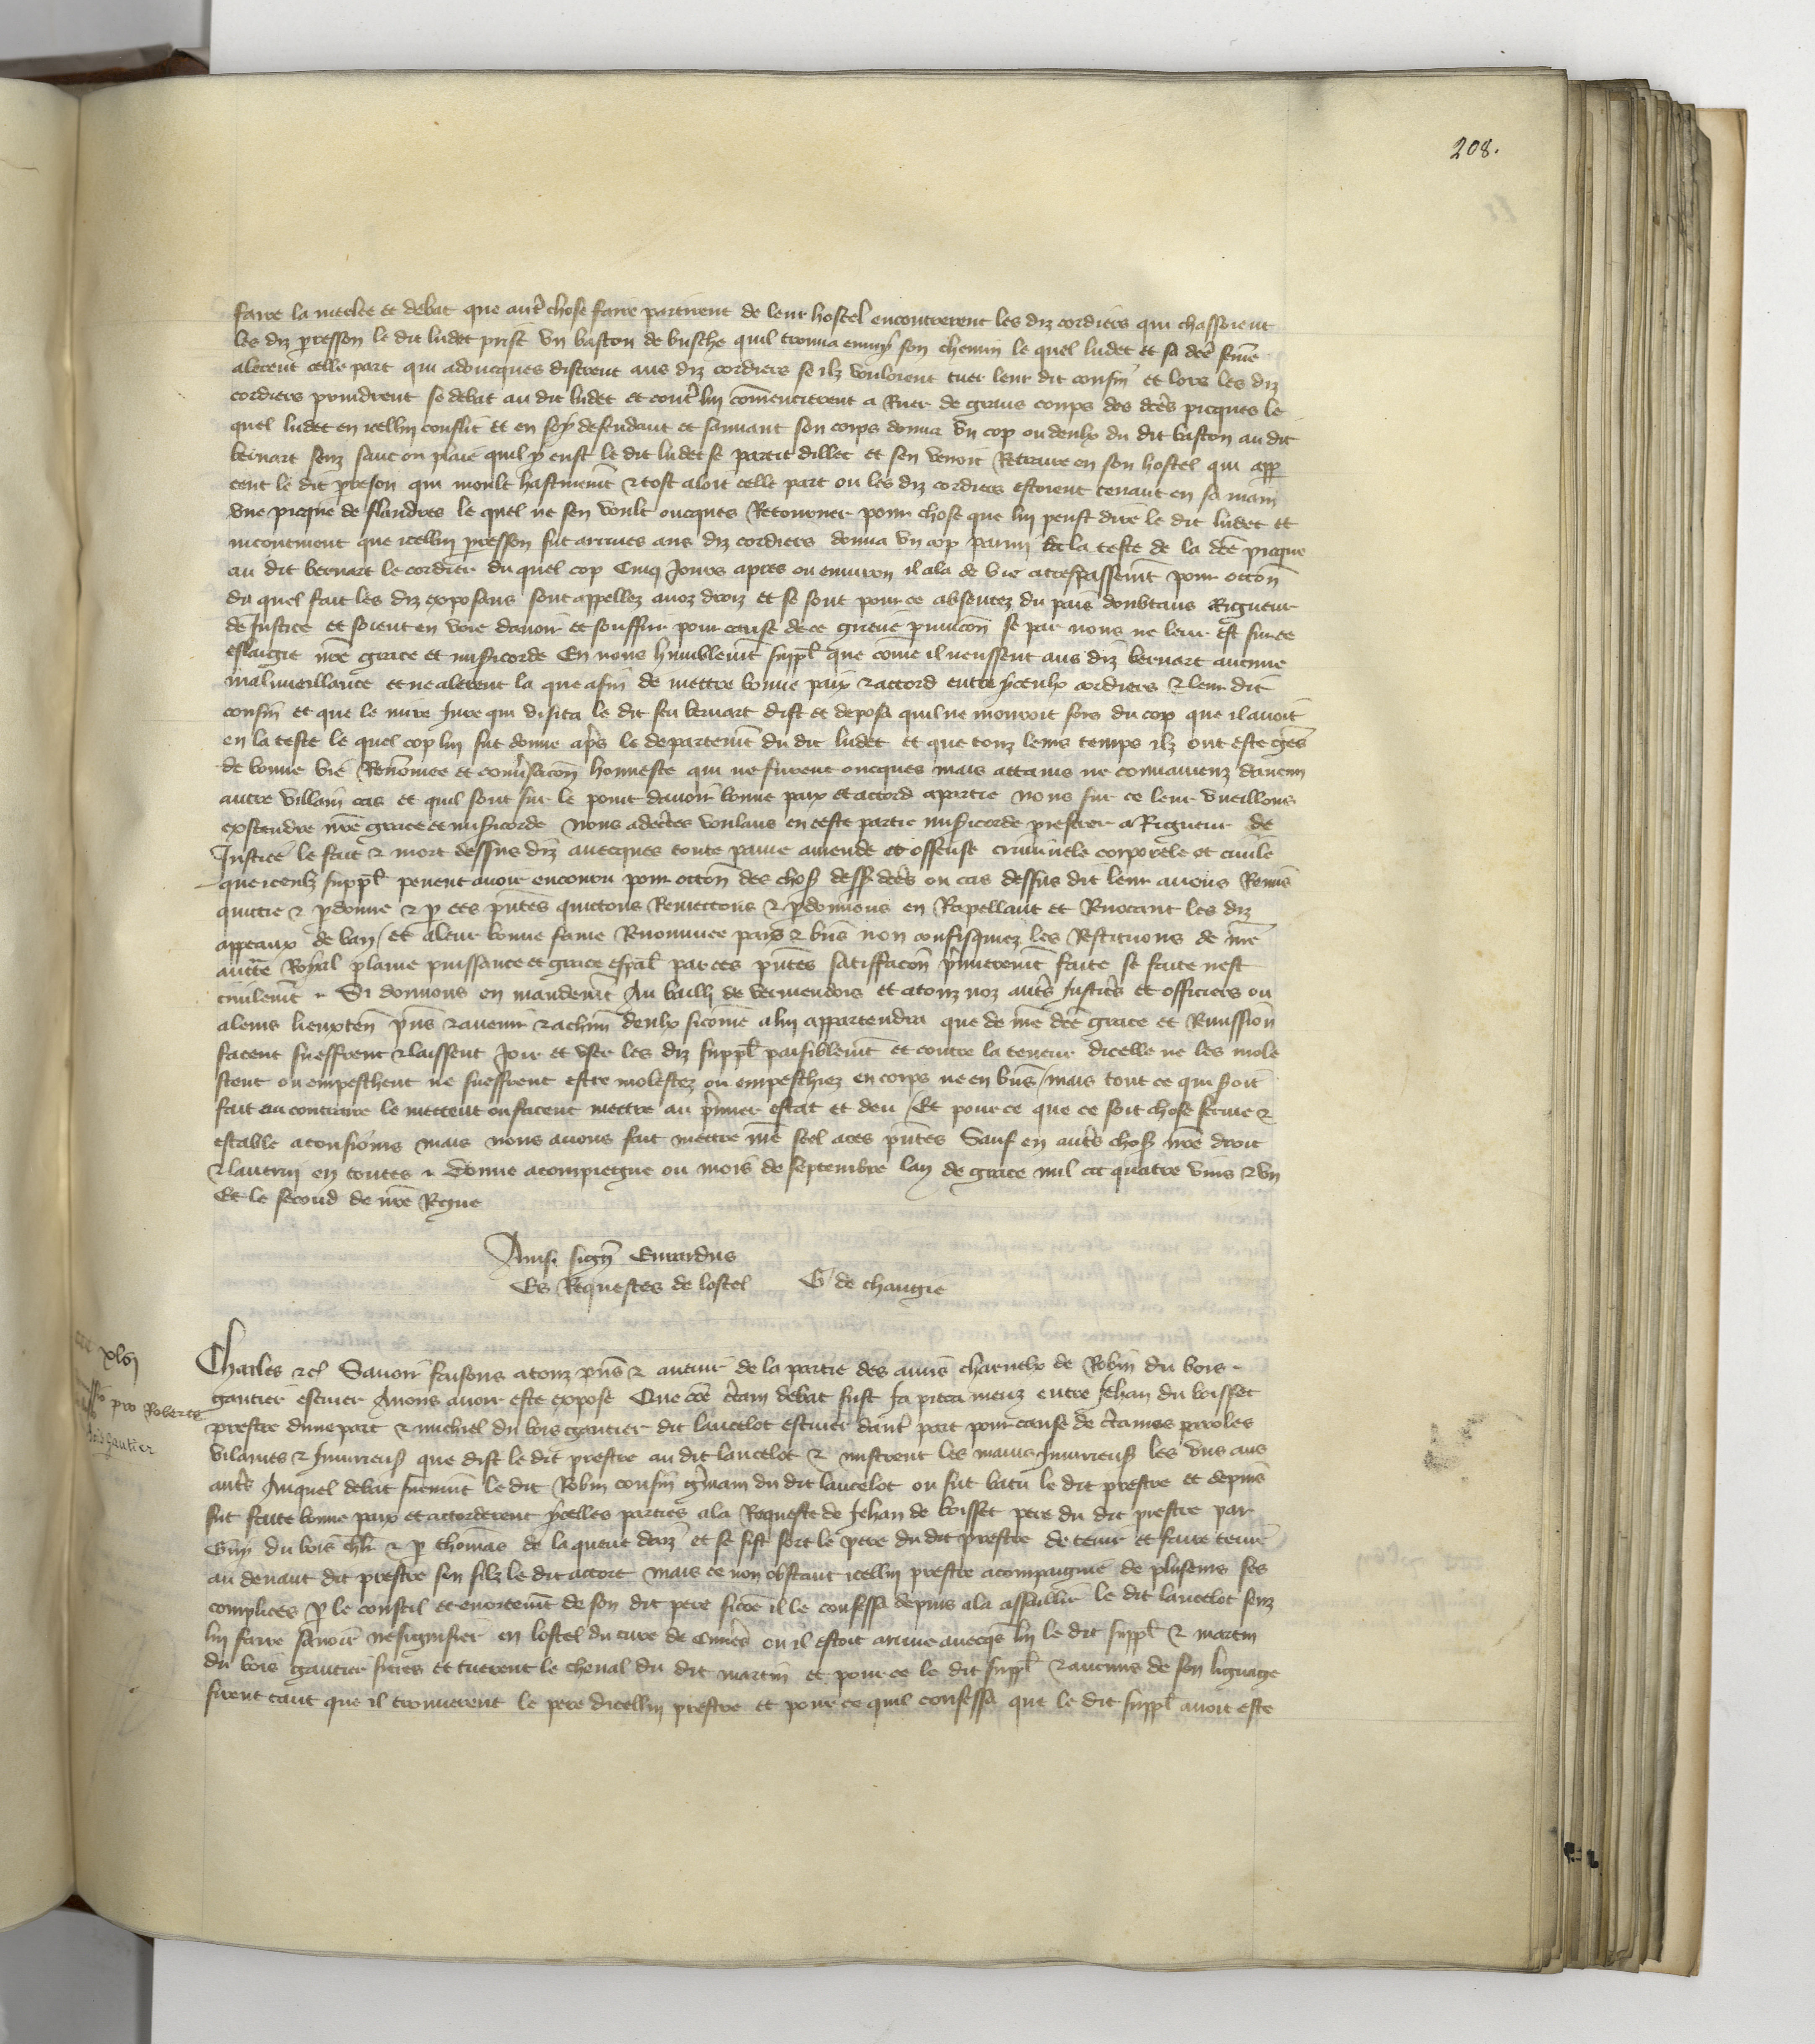 208.
faire la meslee et debat que autre chose faire partirent de leur hostel encontrerent les diz cordiers qui chassoient
les diz presson le dit ludet prist un baston de busche quil trouva enmy son chemin le quel ludet et sa dce feme
alerent celle part qui adoncques distrent aus diz cordiers se ilz vouloient tuer leur dit cousin et lors les diz
cordiers prindrent se debat au dit ludet et contre luy comencierent a Ruer de grans coups des dces picques le
quel ludet en icelluy conflit et en soy defendant et sauvant son corps donna un cop ou deulx du dit baston au dit
bernart senz sanc ou plaie quil y eust le dit ludet se partit dillec et sen venoit Retraire en son hostel qui app
cent le dit preson qui moult hastivmt & tost aloit celle part ou les diz cordiers estoient tenant en sa main
une picque de flandres le quel ne sen voult oncques Retourner pour chose que luy peust dire le dit ludet et
incontinent que icelluy presson fut arrives aus diz cordiers donna un cop parmi la teste de la dce picque
au dit bernart le cordier du quel cop Cinq Jours apres ou environ il ala de vie a trespassemt pour occon
du quel fait les diz exposans sont appellez a noz droiz et se sont pour ce absentez du pais doubtans Rigueur
de Justice et soient en voie davoir et souffrir pour cause de ce grieve punicon se par nous ne leur est sur ce
eslargie nre grace et misericorde En nous humblemt suppl que come il neussent aus diz bernart aucune
malivueillance et ne alerent la que afin de mettre bonne paix & accord entre yceulx cordiers & leur dit
cousin et que le mire Jure qui visita le dit feu bernart dist et deposa quil ne mouroit fors du cop que il avoit
en la teste le quel cop luy fut donne apres le departemt du dit ludet et que touz leurs temps ilz ont este gens
de bonne vie Renomee et conversacon honneste qui ne furent oncques mais attains ne convaincuz daucun
autre villain cas et quil sont sur le point davoir bonne paix et accord a partie nous sur ce leur vueillons
exstendre nre grace et misericorde Nous adecertes voulans en ceste partie misericorde prefferer a Rigueur de
Justice le fait & mort dessus diz avecques toute paine amende et offense criminele corporele et civile
que iceulz suppl pevent avoir encouru pour occon des choses dess dces ou cas dessus dit leur avons Remis
quittie & pdonne & p ces pntes quittons Remettons & pdonnons en Rapellant et Revocant les diz
appeaux de ban Et a leur bonne fame Renommee pais & biens non confisquez les Restituons de nre
aucte Royal plaine puissance et grace espal par ces pntes satisfacon premieremt faite se faite nest
civilemt Si donnons en mandemt Au bailli de vermendois et a touz noz autres Justiciers et officiers ou
a leurs lieuxten pns & avenir & a chun deulx sicome a luy appartendra que de nre dce grace et Remission
facent sueffrent & laissent Joir et user les diz suppl paisiblemt et contre la teneur dicelle ne les mole
stent ou empeschent ne sueffrent estre molestez ou empeschiez en corps ne en biens mais tout ce qui soit
fait au contraire le mettent ou facent mettre au premier estat et deu Et pour ce que ce soit chose ferme &
estable a tousiours mais nous avons fait mettre nre seel a ces pntes Sauf en autres choses nre droit
& lautruy en toutes Donne a compiegne ou mois de septembre lan de grace mil ccc quatre vins & un
Et le second de nre Regne
Ainsi signe Evrardus
Es Requestes de lostel G de changie
xlvj
pro Roberto
gautier
Charles &c Savoir faisons a touz pns & avenir de la partie des amis charnelx de Robin du bois
gautier escuier Avons avoir este expose Que cõe certain debat fust Ja pieca meuz entre Jehan du boisset
prestre dune part & michiel du bois gautier dit lancelot escuier dautre part pour cause de certaines paroles
vilaines & Injurieuses que dist le dit prestre au dit lancelot & mistrent les mains Injurieuses les uns aus
autres Auquel debat survint le dit Robin cousin germain du dit lancelot ou fut batu le dit prestre et depuis
fut faite bonne paix et accorderent ycelles parties a la Requeste de Jehan de boisset pere du dit prestre par
Guy du bois chlr & p thomas de la queue derz et se fist fort le pere du dit prestre de tenir et faire tenir
au devant dit prestre son filz le dit accort mais ce non obstant icelluy prestre acompaignie de plusieurs ses
complices p le conseil et enortemt de son dit pere sicõe il le confessa depuis ala assaillir le dit lancelot senz
luy faire savoir ne signifier en lostel du cure de ou il estoit arrive avecques luy le dit suppl & martin
du bois gautier freres et tuerent le cheval du dit martin et pour ce le dit suppl & aucuns de son lignage
firent tant que il trouverent le pere dicelluy prestre et pour ce quil confessa que le dit suppl avoit este